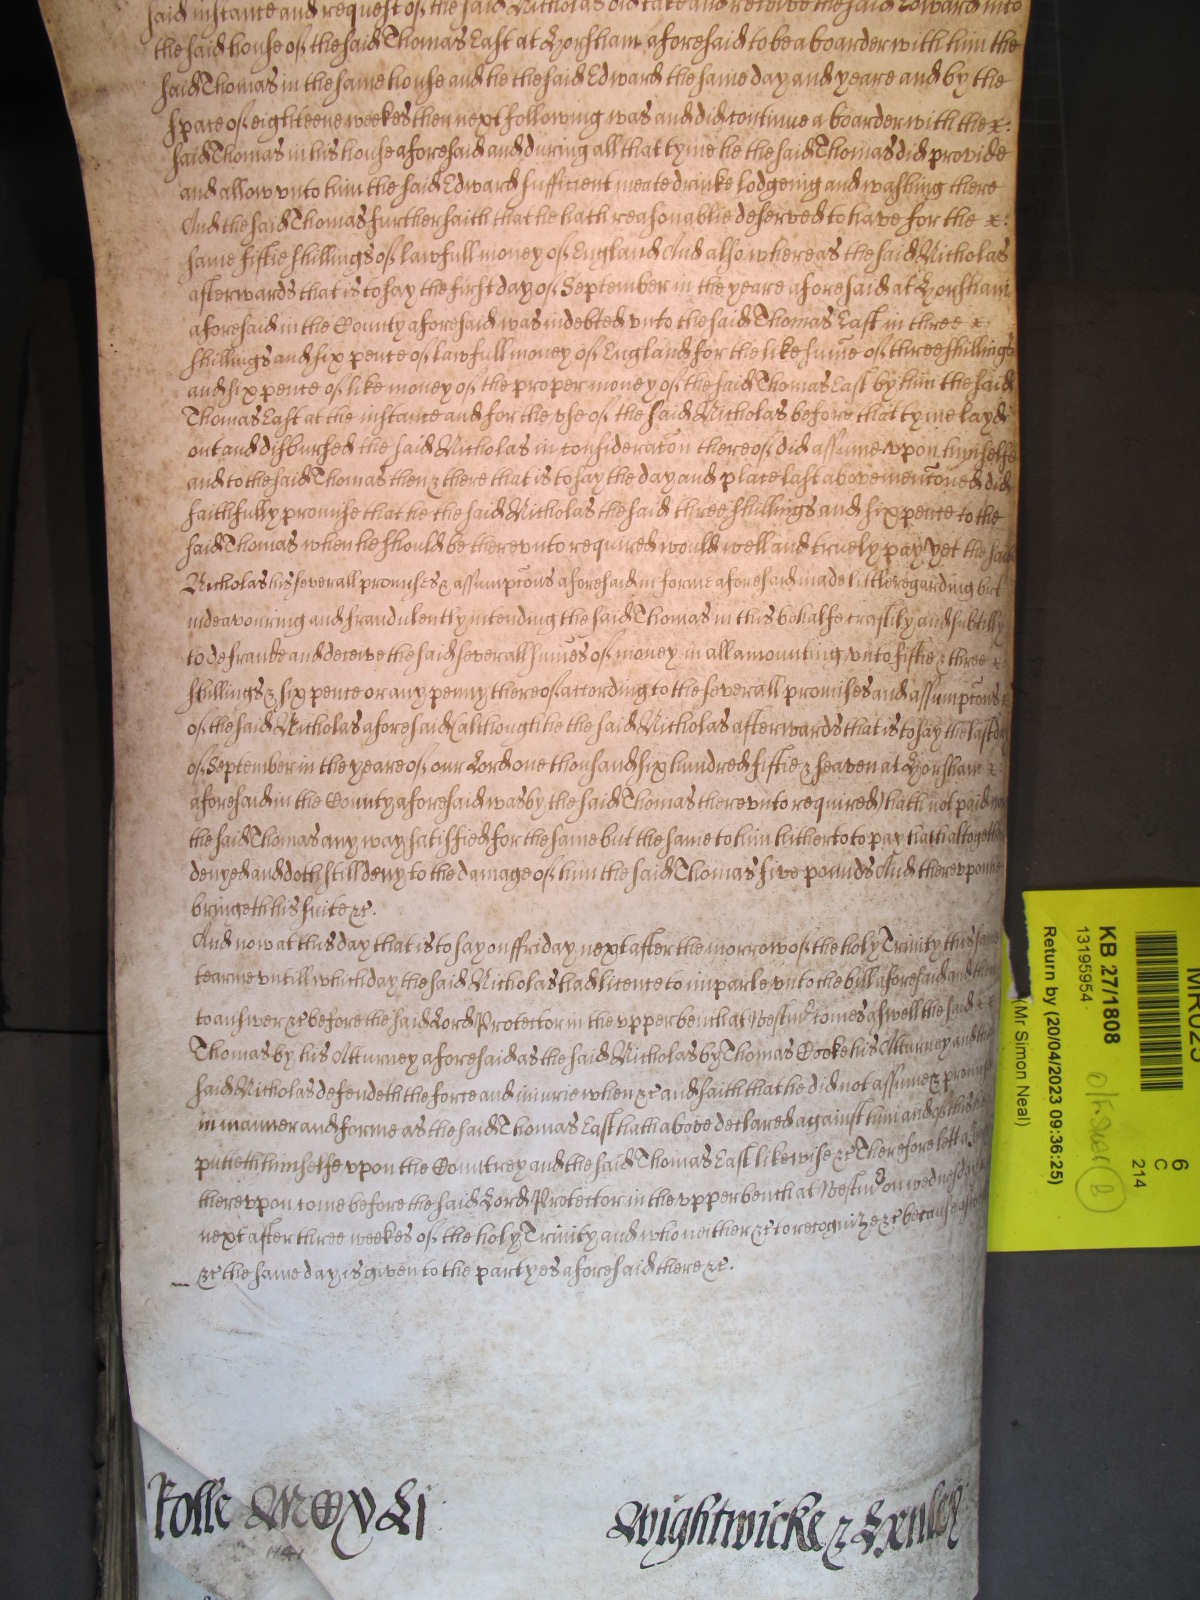 said instance and request of the said Nicholas did take and receive the said Edward into
the said house of the said Thomas East at Horsham aforesaid to be a boarder with him the
said Thomas in the same house and he the said Edward the same day and yeare and by the
space of eighteene weekes then next following was and did continue a boarder with the
said Thomas in his house aforesaid and during all that tyme he the said Thomas did provide
and allow vnto him the said Edward sufficient meate drinke lodgeing and washing there
And the said Thomas further saith that he hath reasonablie deserved to have for the
same fiftie shillings of lawfull money of England And also whereas the said Nicholas
afterwards that is to say the first day of September in the yeare aforesaid at Horsham
aforesaid in the County aforesaid was indebted vnto the said Thomas East in three
shillings and six pence of lawfull money of England for the like sume of three shillings
and six pence of like money of the proper money of the said Thomas East by him the said
Thomas East at the instance and for the vse of the said Nicholas before that tyme layd
out and disbursed the said Nicholas in consideracon thereof did assume vpon himselfe
and to the said Thomas then & there that is to say the day and place last above menconed did
faithfully promise that he the said Nicholas the said three shillings and six pence to the
said Thomas when he should be therevnto required would well and truely pay Yet the said
Nicholas his severall promises & assumpcons aforesaid in forme aforesaid made little regarding but
indeavouring and fraudulently intending the said Thomas in this behalfe craftily and subtilly
to defraude and deceive the said severall sumes of money in all amounting vnto fiftie & three
shillings & six pence or any penny thereof according to the severall promises and assumpcons
of the said Nicholas aforesaid (although he the said Nicholas afterwards that is to say the last day
of September in the yeare of our Lord one thousand six hundred fiftie & seaven at Horsham
aforesaid in the County aforesaid was by the said Thomas therevnto required) hath not paid nor
the said Thomas any way satisfied for the same but the same to him hitherto to pay hath altogether
denyed and doth still deny to the damage of him the said Thomas five pounds And therevpon he
bringeth his suite &c.
And now at this day that is to say on ffriday next after the morrow of the holy Trinity this same
tearme vntill which day the said Nicholas had licence to imparle vnto the bill aforesaid and then
to answer &c before the said Lord Protector in the vpper bench at Westmr comes aswell the said
Thomas by his Atturney aforesaid as the said Nicholas by Thomas Cooke his Atturney and the
said Nicholas defendeth the force and iniurie when &c and saith that he did not assume & promise
in manner and forme as the said Thomas East hath above declared against him and of this he
putteth himselfe vpon the Countrey and the said Thomas East likewise &c Therefore lett a Jury
therevpon come before the said Lord Protector in the vpper bench at Westmr on wednesday
next after three weekes of the holy Trinity and who neither &c to recognize &c because aswell
&c the same day is given to the partyes aforesaid there &c.
Rolle MDXLI
1141
Wightwicke & Exnley
MR025
6
C
214
KB 27/1808
13195954
Return by (20/04/2023 09:36:25)
(Mr Simon Neal)